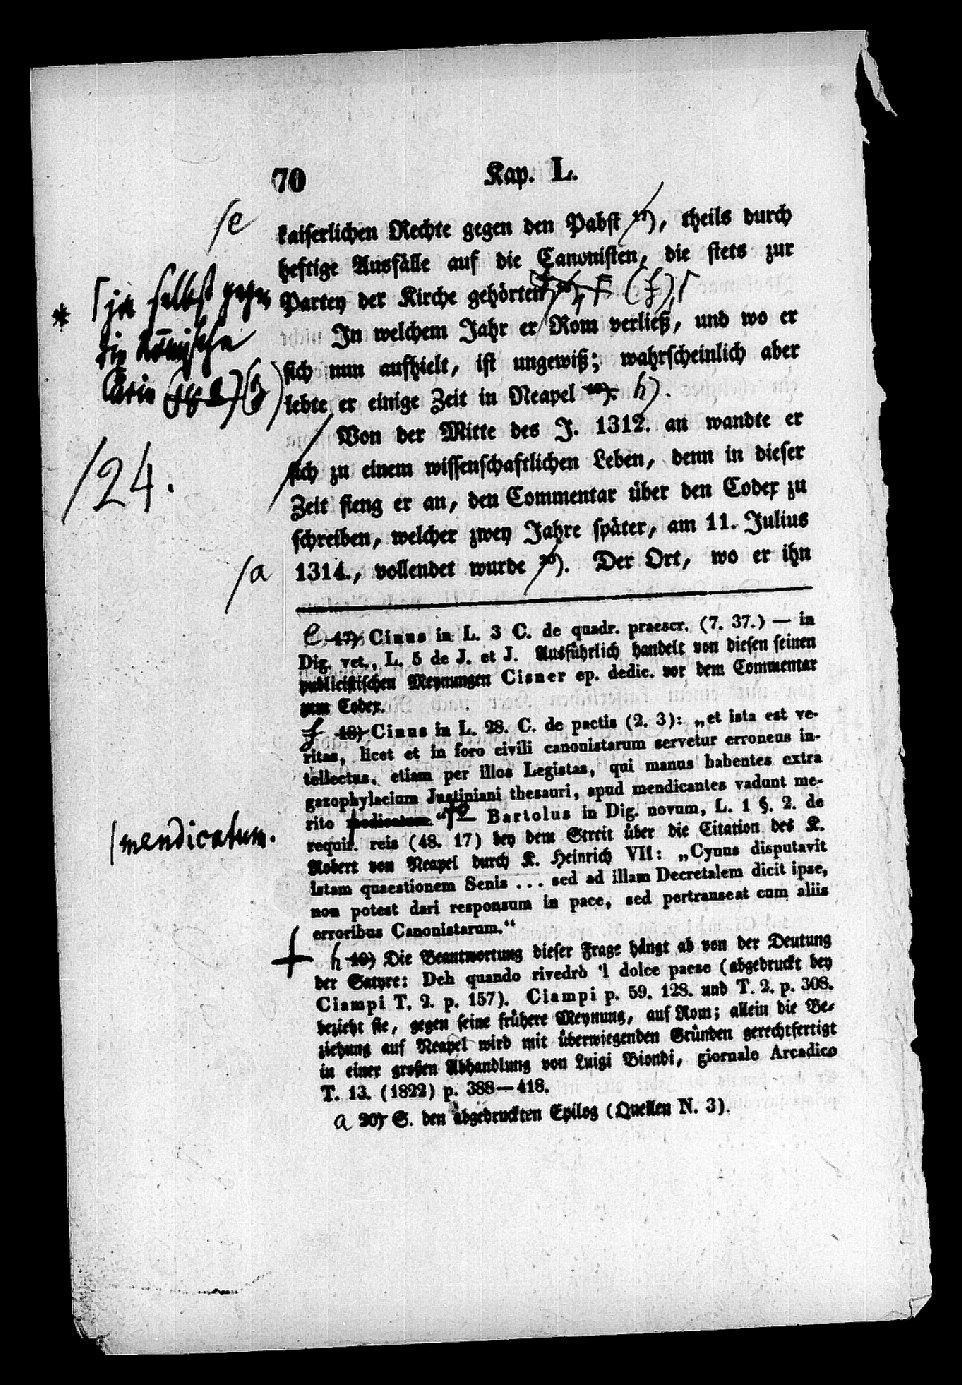 70 Kap. L.
/e
kaiserlichen Rechte gegen den Pabst 17), theils durch
heftige Ausfälle auf die Canonisten, die stets zur
Partey der Kirche gehörten 18). (f)
* ja selbst gegen
die Römische
Curie (g)
In welchem Jahr er Rom verließ, und wo er
sich nun aufhielt, ist ungewiß; wahrscheinlich aber
lebte er einige Zeit in Neapel 19). h).
/24.
Von der Mitte des J. 1312. an wandte er
sich zu einem wissenschaftlichen Leben, denn in dieser
Zeit fieng er an, den Commentar über den Codex zu
schreiben, welcher zwey Jahre später, am 11. Julius
/a
1314., vollendet wurde 20). Der Ort, wo er ihn
e 17) Cinus in L. 3 C. de quadr. praescr. (7. 37.) — in
Dig. vet., L. 5 de J. et J. Ausführlich handelt von diesen seinen
publicistischen Meynungen Cisner ep. dedic. vor dem Commentar
zum Codex.
f 18) Cinus in L. 28. C. de pactis (2. 3): „et ista est ve-
ritas, licet et in foro civili canonistarum servetur erroneus in-
tellectus, etiam per illos Legistas, qui manus habentes extra
gazophylacium Justiniani thesauri, apud mendicantes vadunt me-
rito “ Bartolus in Dig. novum, L. 1 §. 2. de
/mendicatum.
requir. reis (48. 17) bey dem Streit über die Citation des K.
Robert von Neapel durch K. Heinrich VII: „Cynus disputavit
istam quaestionem Senis ... sed ad illam Decretalem dicit ipse,
non potest dari responsum in pace, sed pertranseat cum aliis
erroribus Canonistarum.“
+ h 19) Die Beantwortung dieser Frage hängt ab von der Deutung
der Satyre: Deh quando rivedrò 'l dolce paese (abgedruckt bey
Ciampi T. 2. p. 157). Ciampi p. 59. 128. und T. 2. p. 308.
bezieht sie, gegen seine frühere Meynung, auf Rom; allein die Be-
ziehung auf Neapel wird mit überwiegenden Gründen gerechtfertigt
in einer großen Abhandlung von Luigi Biondi, giornale Arcadico
T. 13. (1822) p. 388—418.
a 20) S. den abgedruckten Epilog (Quellen N. 3).